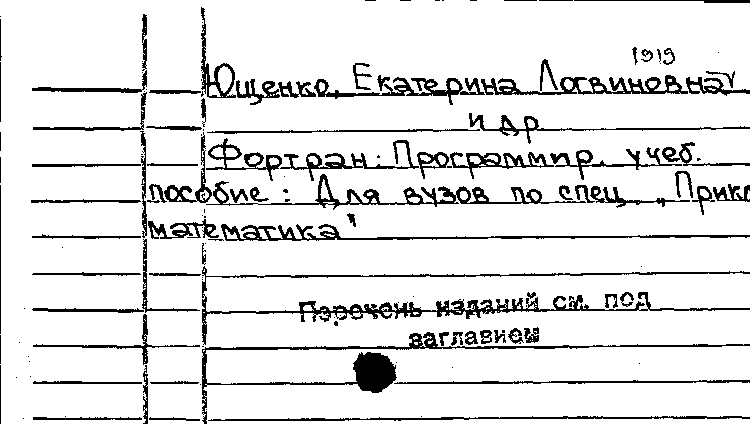 1919
Ющенко, Екатерина Логвиновна
и др
Фортран: Программир. учеб.
пособие: Для вузов по спец. „Прикл
математика"
Перечень изданий см. под
заглавием